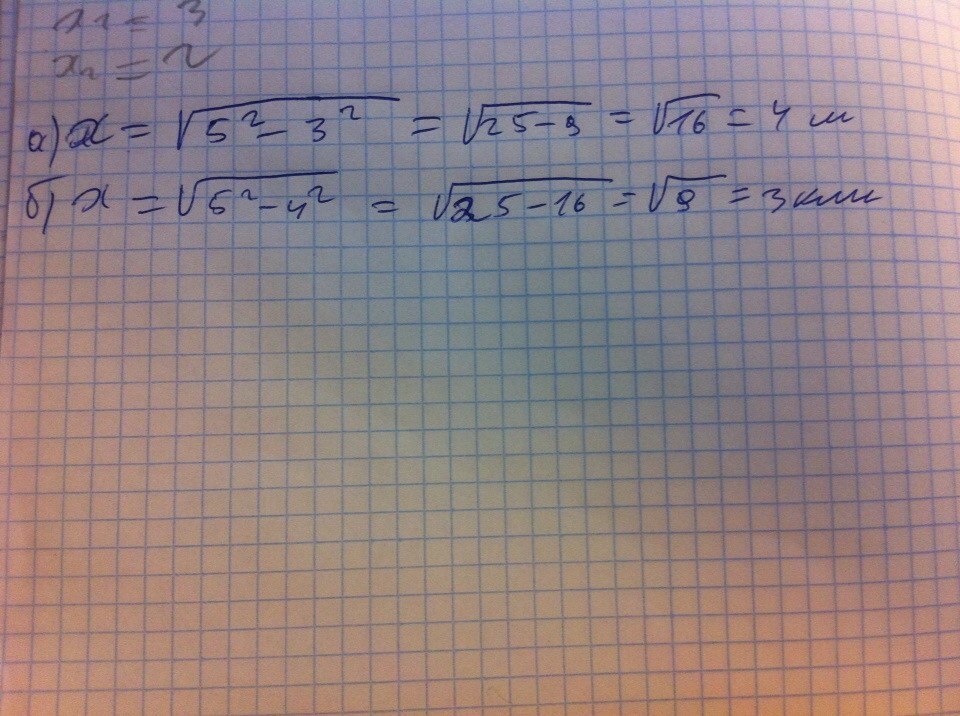 x₁ = 3
x₂ = 2
а) x = √(5² - 3²) = √(25-9) = √16 = 4 м
б) x = √(5² - 4²) = √(25-16) = √9 = 3 км